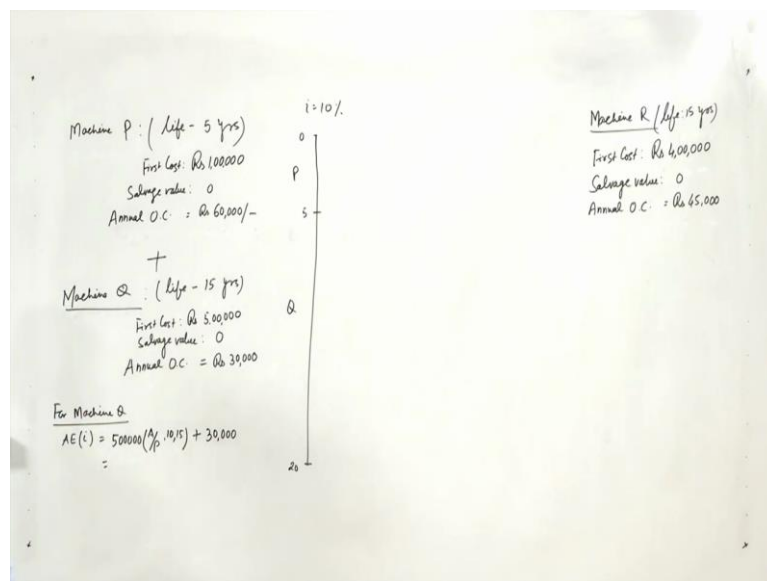 i = 10%
Machine P : ( life - 5 yrs)
First Cost: Rs 1,00,000
Salvage value : 0
Annual O.C. = Rs 60,000/-
+
Machine Q : ( life - 15 yrs)
First Cost : Rs 5,00,000
Salvage value : 0
Annual O.C. = Rs 30,000
For Machine Q
AE(i) = 500000(A/P, 10,15) + 30,000
=
0
P
5
Q
20
Machine R ( life: 15 yrs)
First Cost: Rs 4,00,000
Salvage value: 0
Annual O.C. = Rs 45,000